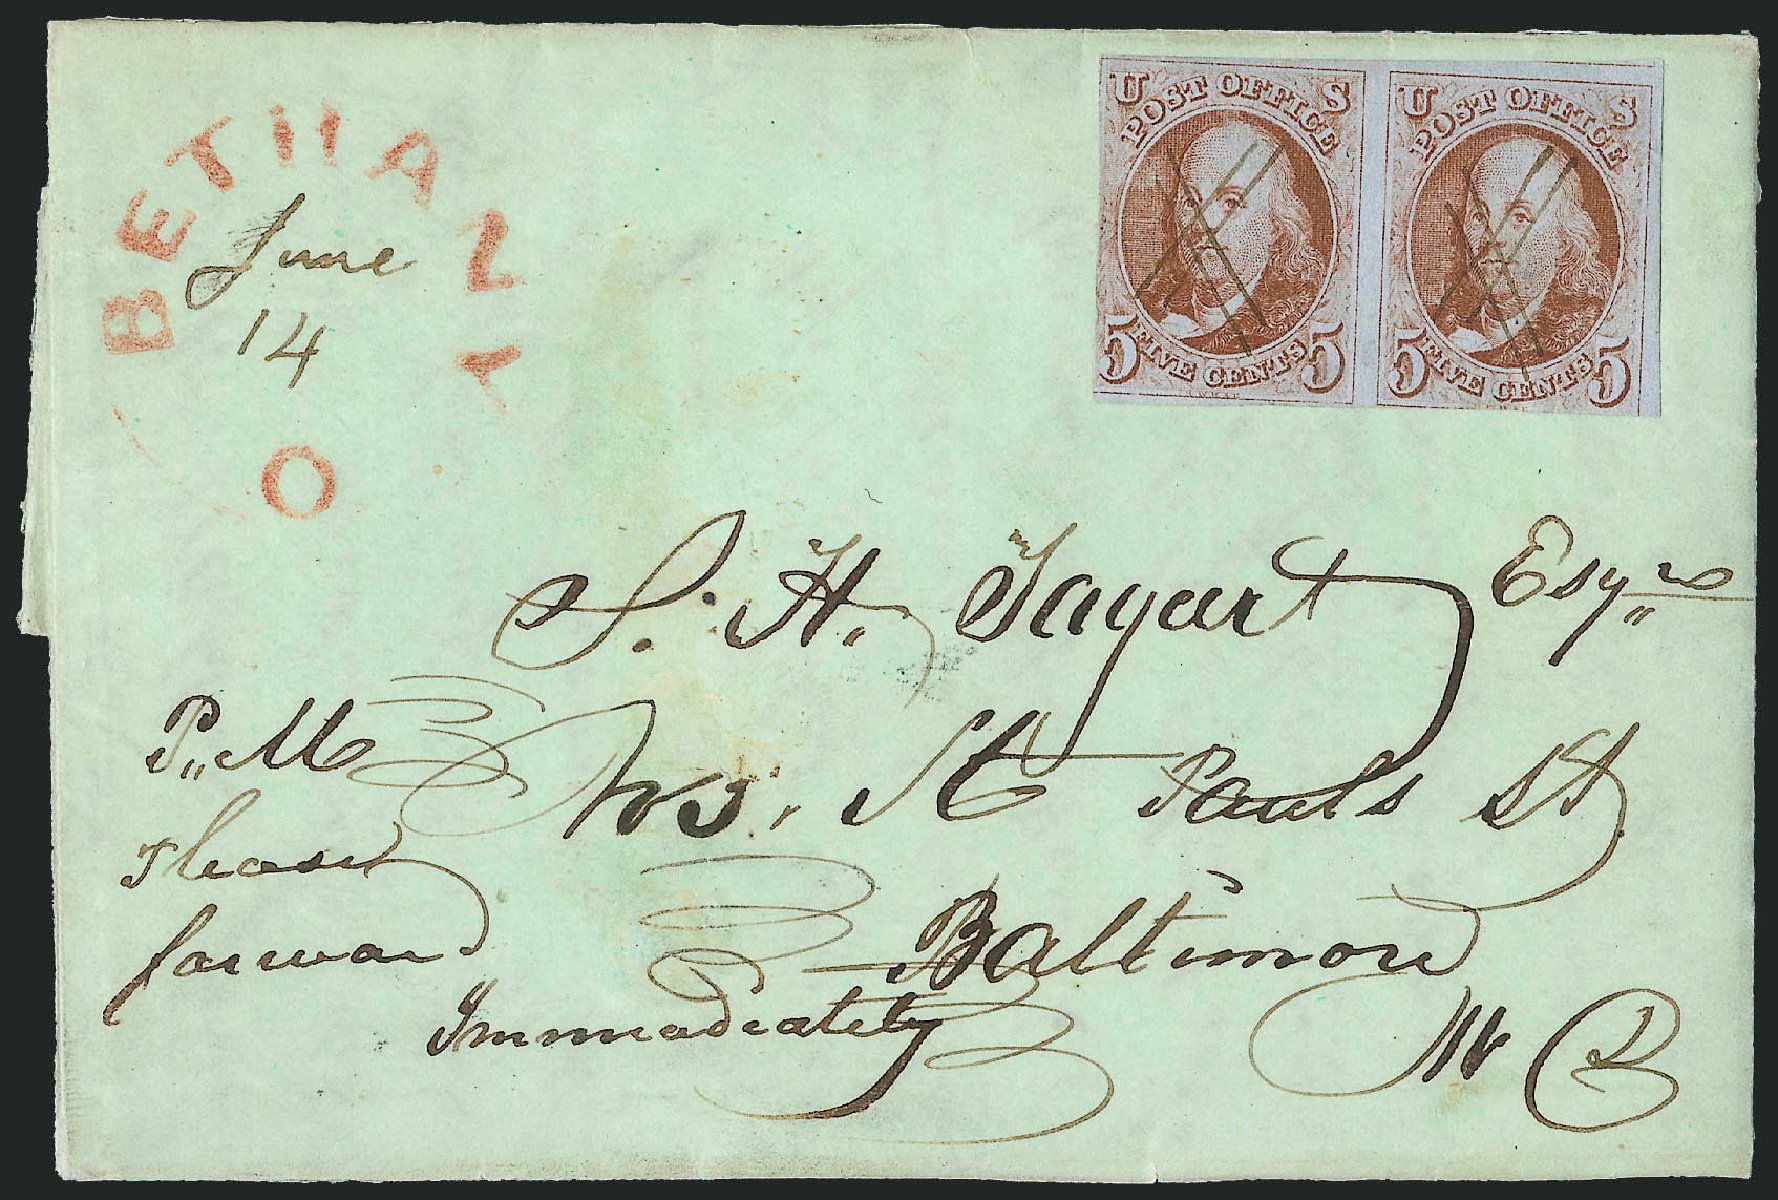 BETHANY
O
June
14
U S
POST OFFICE
5 FIVE CENTS 5
U S
POST OFFICE
5 FIVE CENTS 5
S. H. Tagart Esqr
St Pauls St
Baltimore
Md
P. M
Please
forward
Immediately